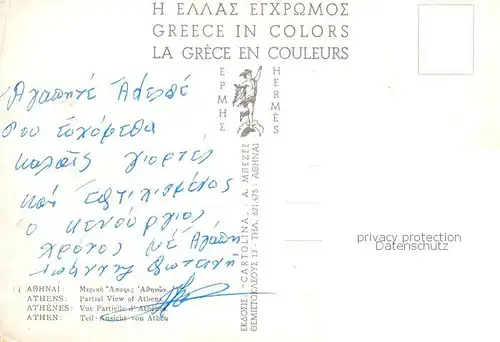 Η ΕΛΛΑΣ ΕΓΧΡΩΜΟΣ
GREECE IN COLORS
LA GRÈCE EN COULEURS
ΕΡΜΗΣ
HERMÈS
Αγαπητέ Αδελφέ
σου ευχόμεθα
καλαίς γιορτές
και
ο κενούργιος
χρόνος μέ Αγάπη
Ιωάννης Φωτεινή
ΕΚΔΟΣΙΣ -CARTOLINA... Α. ΜΠΕΖΕΣ
ΘΕΜΙΣΤΟΚΛΕΟΥΣ 13 - ΤΗΛ. 621.475 - ΑΘΗΝΑΙ
privacy protection
Datenschutz
ΑΘΗΝΑΙ: Μερική Ἄποψις Ἀθηνῶν
ATHENS: Partial View of Athens
ATHÈNES: Vue Partielle d'Athènes
ATHEN: Teil-Ansicht von Athen